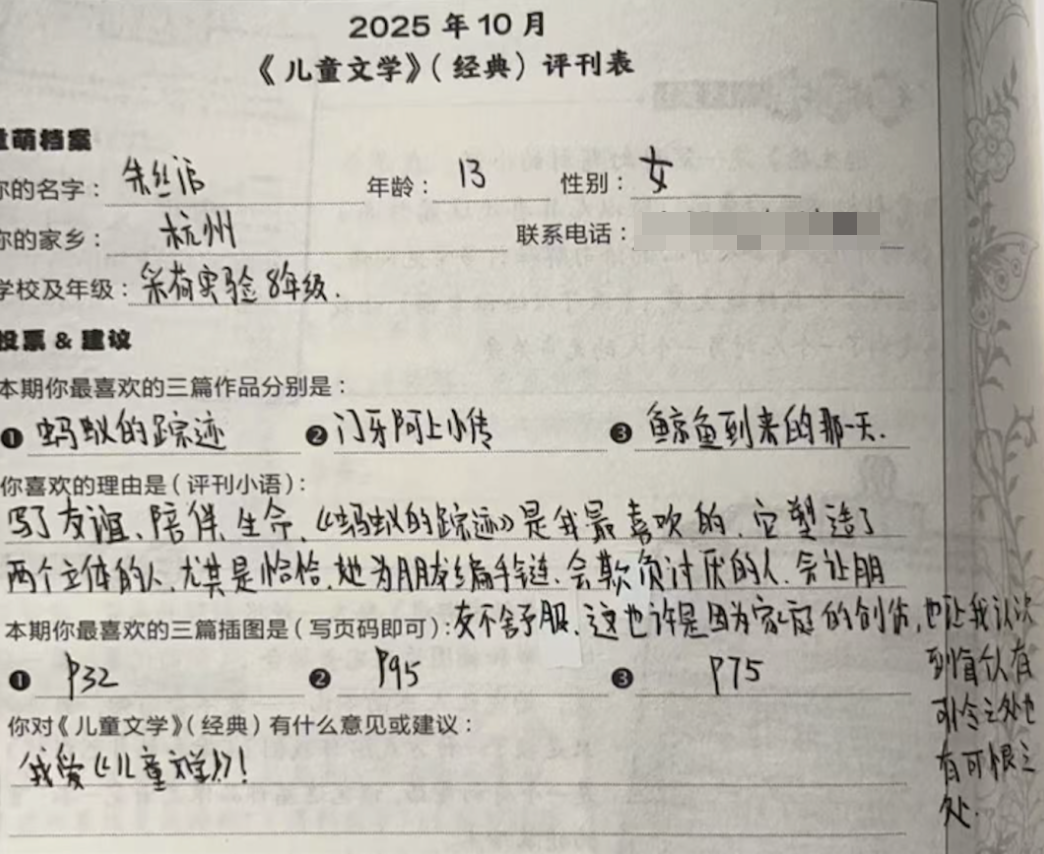 2025 年 10 月
《儿童文学》（经典）评刊表
萌档案
你的名字： 朱丝 年龄： 13 性别： 女
你的家乡： 杭州 联系电话：
学校及年级： 采荷实验 8年级.
投票 & 建议
本期你最喜欢的三篇作品分别是：
❶ 蚂蚁的踪迹 ❷ 门牙阿上小传 ❸ 鲸鱼到来的那一天.
你喜欢的理由是（评刊小语）：
写了友谊、陪伴、生命,《蚂蚁的踪迹》是我最喜欢的,它塑造了
两个立体的人,尤其是恰恰,她为朋友编手链,会欺负讨厌的人,会让朋
本期你最喜欢的三篇插图是（写页码即可）： 友不舒服,这也许是因为家庭的创伤,也让我认次
❶ P32 ❷ P95 ❸ P75
到每个人有
可怜之处也
有可恨之
处.
你对《儿童文学》（经典）有什么意见或建议：
我爱《儿童文学》!